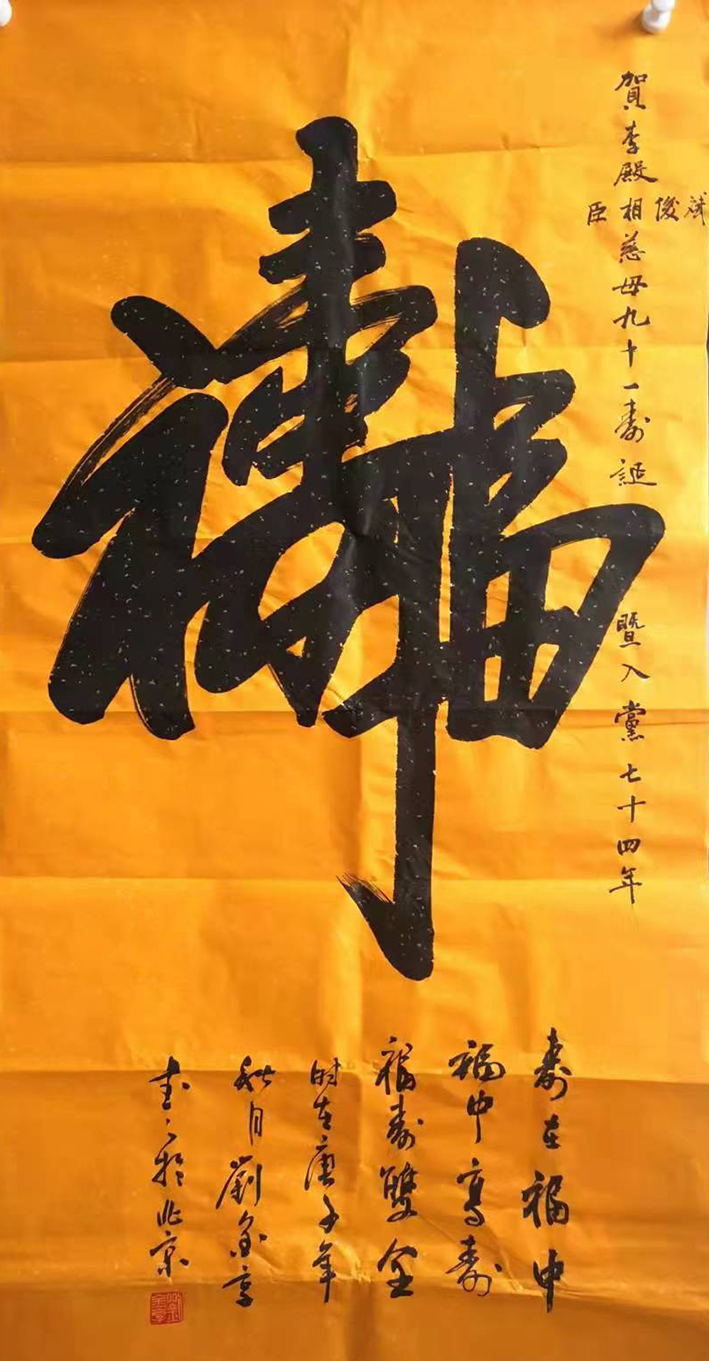 賀李殿臣相俊斌慈母九十一壽誕 暨入黨七十四年
福壽
壽在福中
福中高壽
福壽雙全
时在庚子年
秋月劉金享
書於北京